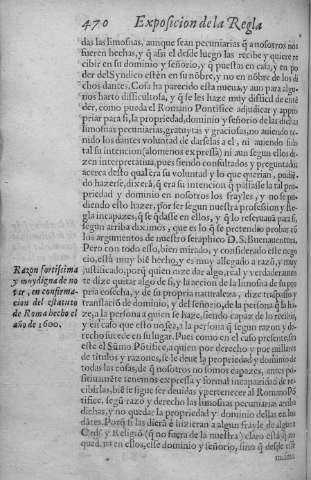 470 Exposicion de la Regla
das las limosnas, aunque sean pecuniarias q̃ a nosotros nos
fueren hechas, y q̃ assi el desde luego las recibe y quiere re
cibir en su dominio y señorio, y q̃ puesta en casa, y en po
der del Syndico estèn en su nõbre, y no en nõbre de los di
chos dantes. Cosa ha parecido esta nueva, y aun para algu-
nos harto dificultosa, y q̃ se les haze muy dificil de enten
der, como pueda el Romano Pontifice adjudicar y appro
priar para si, la propriedad, dominio y señorio de las dichas
limosnas pecuniarias, gratuytas y graciosas, no auiendo te-
nido los dantes voluntad de darselas a el, ni auiendo
tal su intencion (alomenos expressa) ni aun segun ellos di-
zen interpretatiua, pues siendo consultados y preguntados
acerca desto qual era su voluntad y lo que querian, pudiẽ-
do hazerse, dixerã, q̃ era su intencion q̃ passasse la tal pro-
priedad y dominio en nosotros los frayles, y no se pu-
diendo esto hazer, por ser segun nuestra profession y Re-
gla incapazes, q̃ se q̃dasse en ellos, y q̃ lo reseruauã para si,
segun arriba diximos, que es lo q̃ se pretendio probar cõ
los argumentos de nuestro seraphico D. S. Buenauentura.
Pero con todo esso, bien mirado, y considerado este nego
cio, està muy biẽ hecho, y es muy allegado a razõ, y muy
justificado, porq̃ quien dize dar algo, real y verdaderamen
te dize quitar algo de si, y la accion de la limosna de su pro
pria cosecha, y de su propria naturaleza, dize traspasso y
translaciõ de dominio, y del señorio, de la persona q̃ la ha-
ze, a la persona a quien se haze, siendo capaz de lo recibir,
y en caso que esto no sea, a la persona q̃ segun razon y de-
recho sucede en su lugar. Pues como en el caso presente
este el Sũmo Põtifice, a quien por derecho y por millares
de titulos y razones, se le deue la propriedad y dominio de
todas las cosas, de q̃ nosotros no somos capazes, antes po-
sitiuamẽte tenemos expressa y formal incapacidad de re-
cibirlas, biẽ se sigue ser deuidas y pertenecer al Romano Põ
tifice, segũ razõ y derecho las limosnas pecuniarias arriba
dichas, y no quedar la propriedad y dominio dellas en los
dãtes. Porq̃ si las diera ò hizieran a algun frayle de alguna
Ordẽ y Religiõ (q̃ no fuera de la nuestra) claro està q̃ no
quedara en ellos, esse dominio y señorio, sino q̃ desde esse
Razon fortissima
y muy digna de no
tar, en confirma-
cion del estatuto
de Roma hecho el
año de 1600.